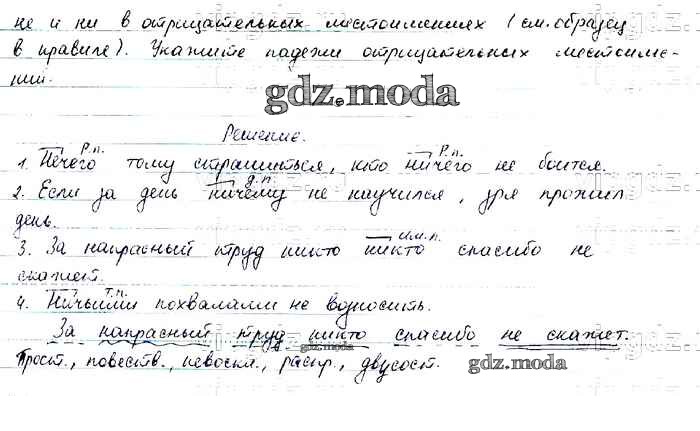 не и ни в отрицательных местоимениях (см. образец
в правиле). Укажите падежи отрицательных местоиме-
ний.
gdz.moda
Решение.
р.п. р.п.
1. Нечего тому страшиться, кто ничего не боится.
д.п.
2. Если за день ничему не научился, зря прожил
день.
им.п.
3. За напрасный труд никто никто спасибо не
скажет.
т.п.
4. Ничьими похвалами не возносить.
За напрасный труд никто спасибо не скажет.
gdz.moda
Прост., повеств., невоскл., распр., двусост.
gdz.moda